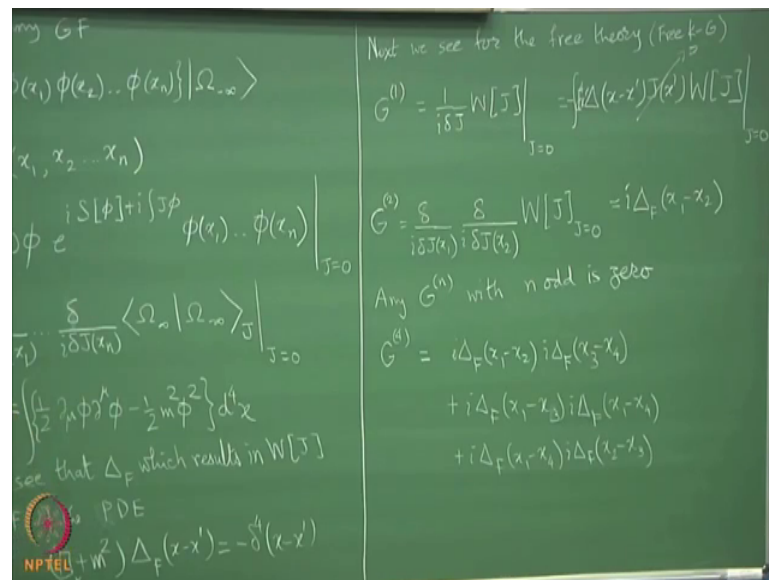 ny GF
φ(x₁) φ(x₂)..φ(xₙ)}|Ω₋∞⟩
(x₁, x₂ ... xₙ)
φ e^{iS[φ]+i∫Jφ} φ(x₁)..φ(xₙ)|_{J=0}
x₁) ... δ/iδJ(xₙ) ⟨Ω∞|Ω₋∞⟩_J|_{J=0}
=∫{½ ∂_μφ∂^μφ-½m²φ²}d⁴x
see that Δ_F which results in W[J]
PDE
+m²)Δ_F(x-x')=-δ⁴(x-x')
Next we see for the free theory (Free K-G)
G^{(1)} = 1/iδJ W[J]|_{J=0} =∫iΔ(x-x')J(x')W[J]|_{J=0}
G^{(2)}= δ/iδJ(x₁) δ/iδJ(x₂) W[J]_{J=0} =iΔ_F(x₁-x₂)
Any G^{(n)} with n odd is zero
G^{(4)} = iΔ_F(x₁-x₂)iΔ_F(x₃-x₄)
+iΔ_F(x₁-x₃)iΔ_F(x₁-x₄)
+iΔ_F(x₁-x₄)iΔ_F(x₂-x₃)
NPTEL